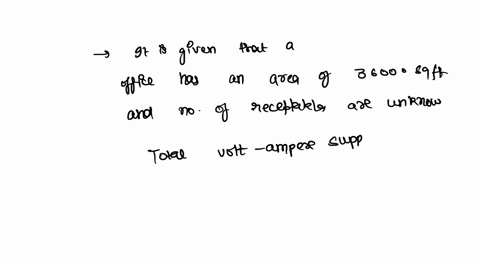 → It is given that a
office has an area of 36000 sqft
and no. of receptables are unknow
Total volt-ampere supp